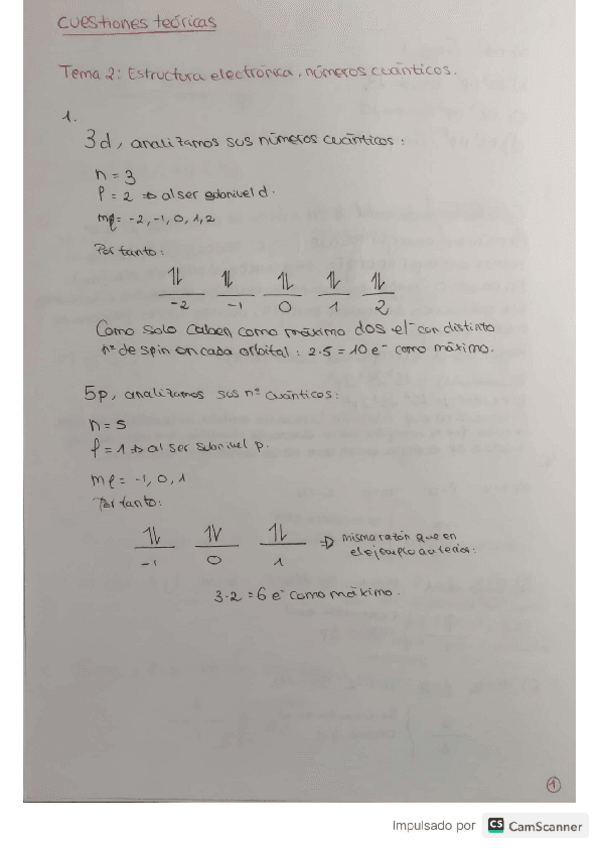 Cuestiones teóricas
Tema 2: Estructura electrónica, números cuánticos.
1.
3d, analizamos sus números cuánticos:
n = 3
l = 2 => al ser subnivel d.
ml = -2, -1, 0, 1, 2
Por tanto:
1l 1l 1l 1l 1l
-2 -1 0 1 2
Como solo caben como máximo dos el- con distinto
nº de spin en cada orbital: 2·5 = 10 e- como máximo.
5p, analizamos sus nº cuánticos:
n = 5
l = 1 => al ser subnivel p.
ml = -1, 0, 1
Por tanto:
1l 1l 1l => misma razón que en
el ejemplo anterior:
-1 0 1
3·2 = 6 e- como máximo.
1
Impulsado por CS CamScanner